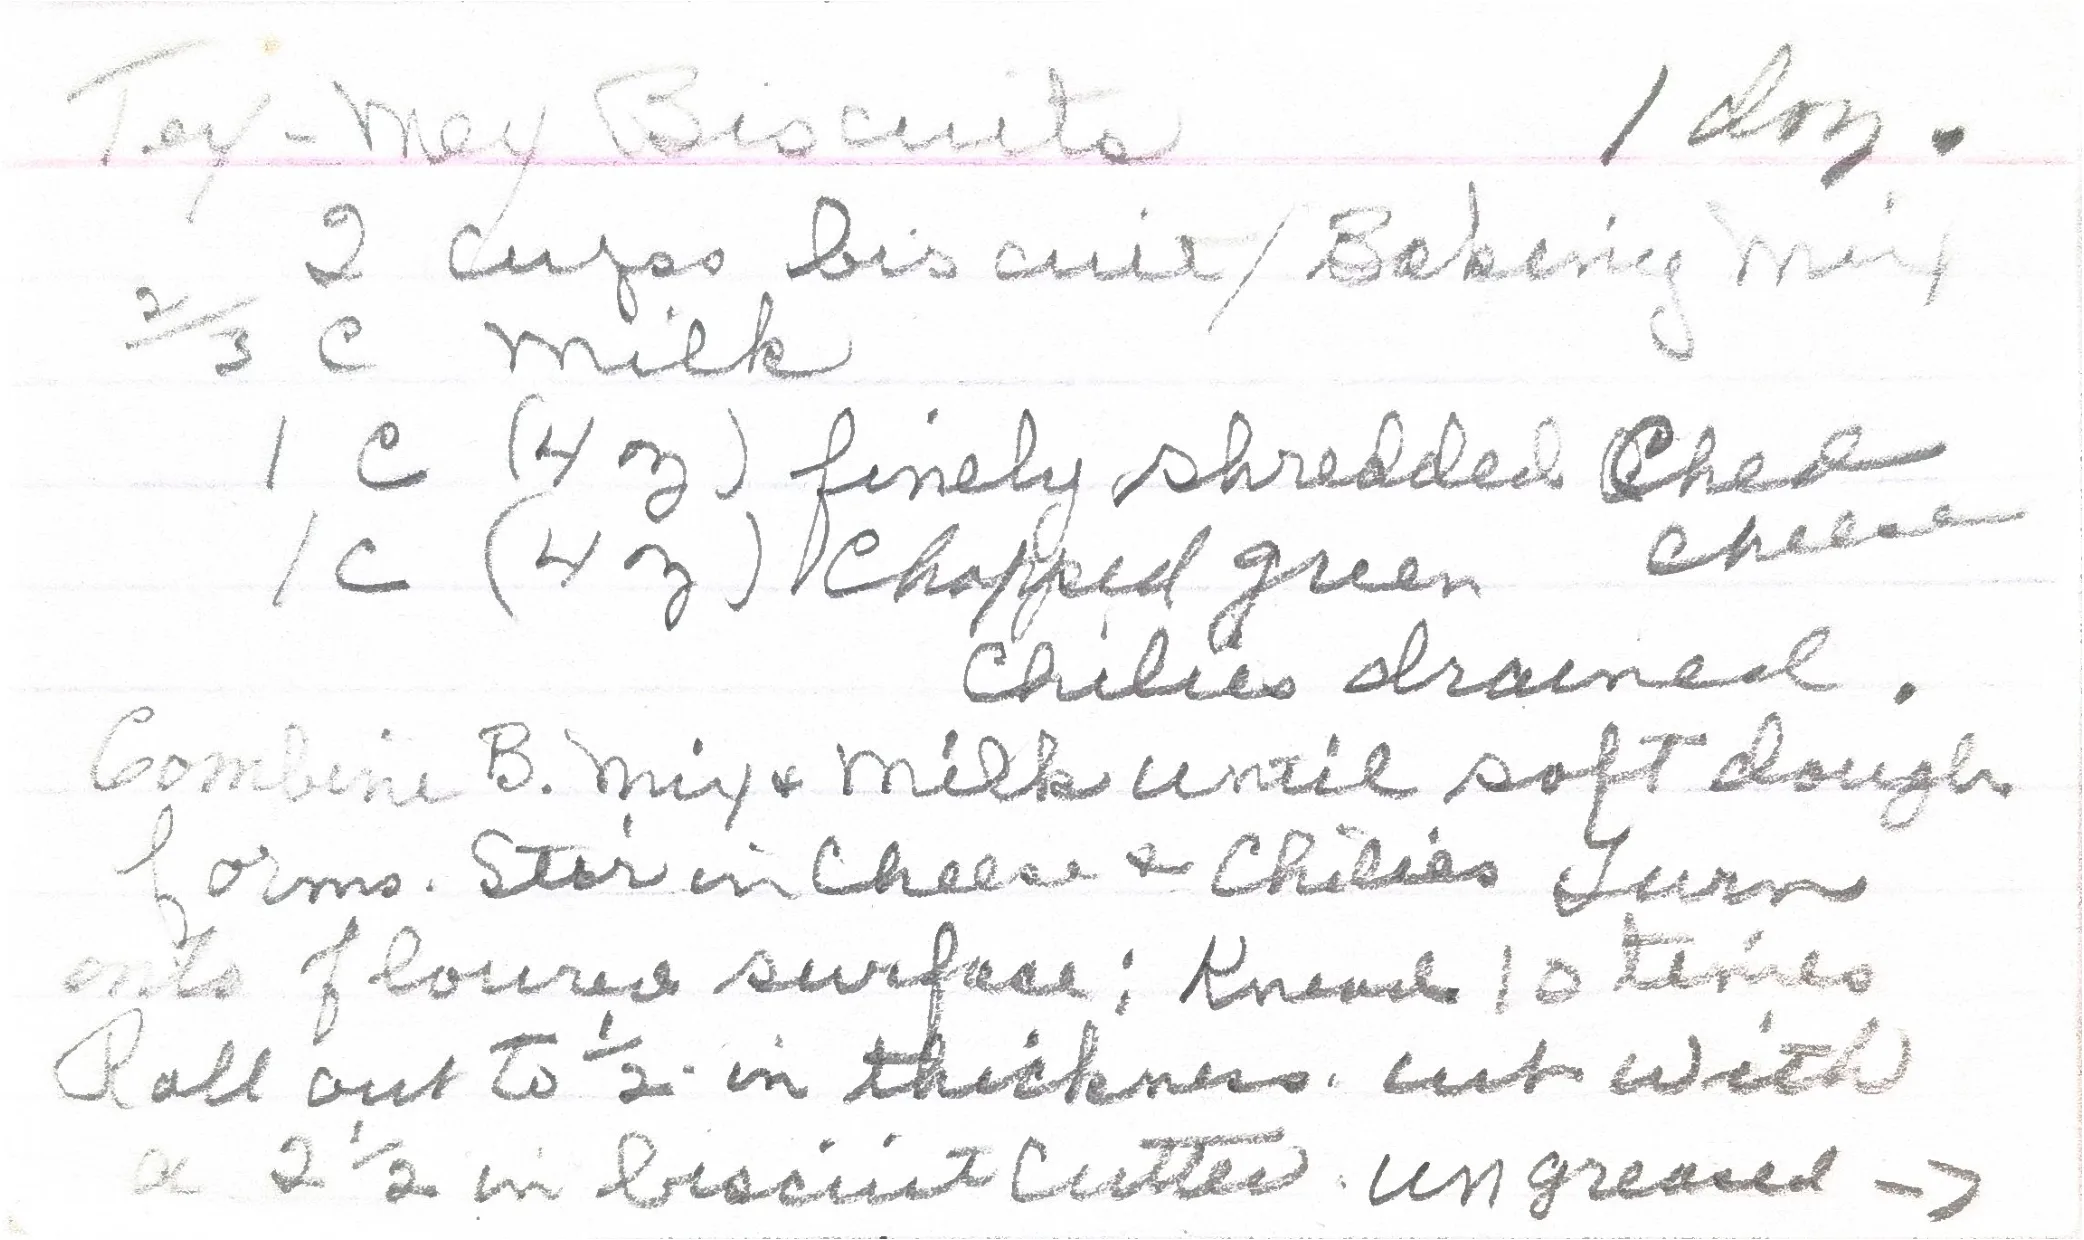 Tex-Mex Biscuits 1 doz.
2 cups biscuit/Baking Mix
2/3 C Milk
1 C (4 oz) finely shredded Ched
cheese
1 C (4 oz) Chopped green
Chilies drained.
Combine B. Mix & Milk until soft dough
forms. Stir in Cheese & Chilies Turn
onto floured surface; Knead 10 times
Roll out to 1/2 in thickness. cut with
a 2 1/2 in biscuit Cutter. ungreased ->